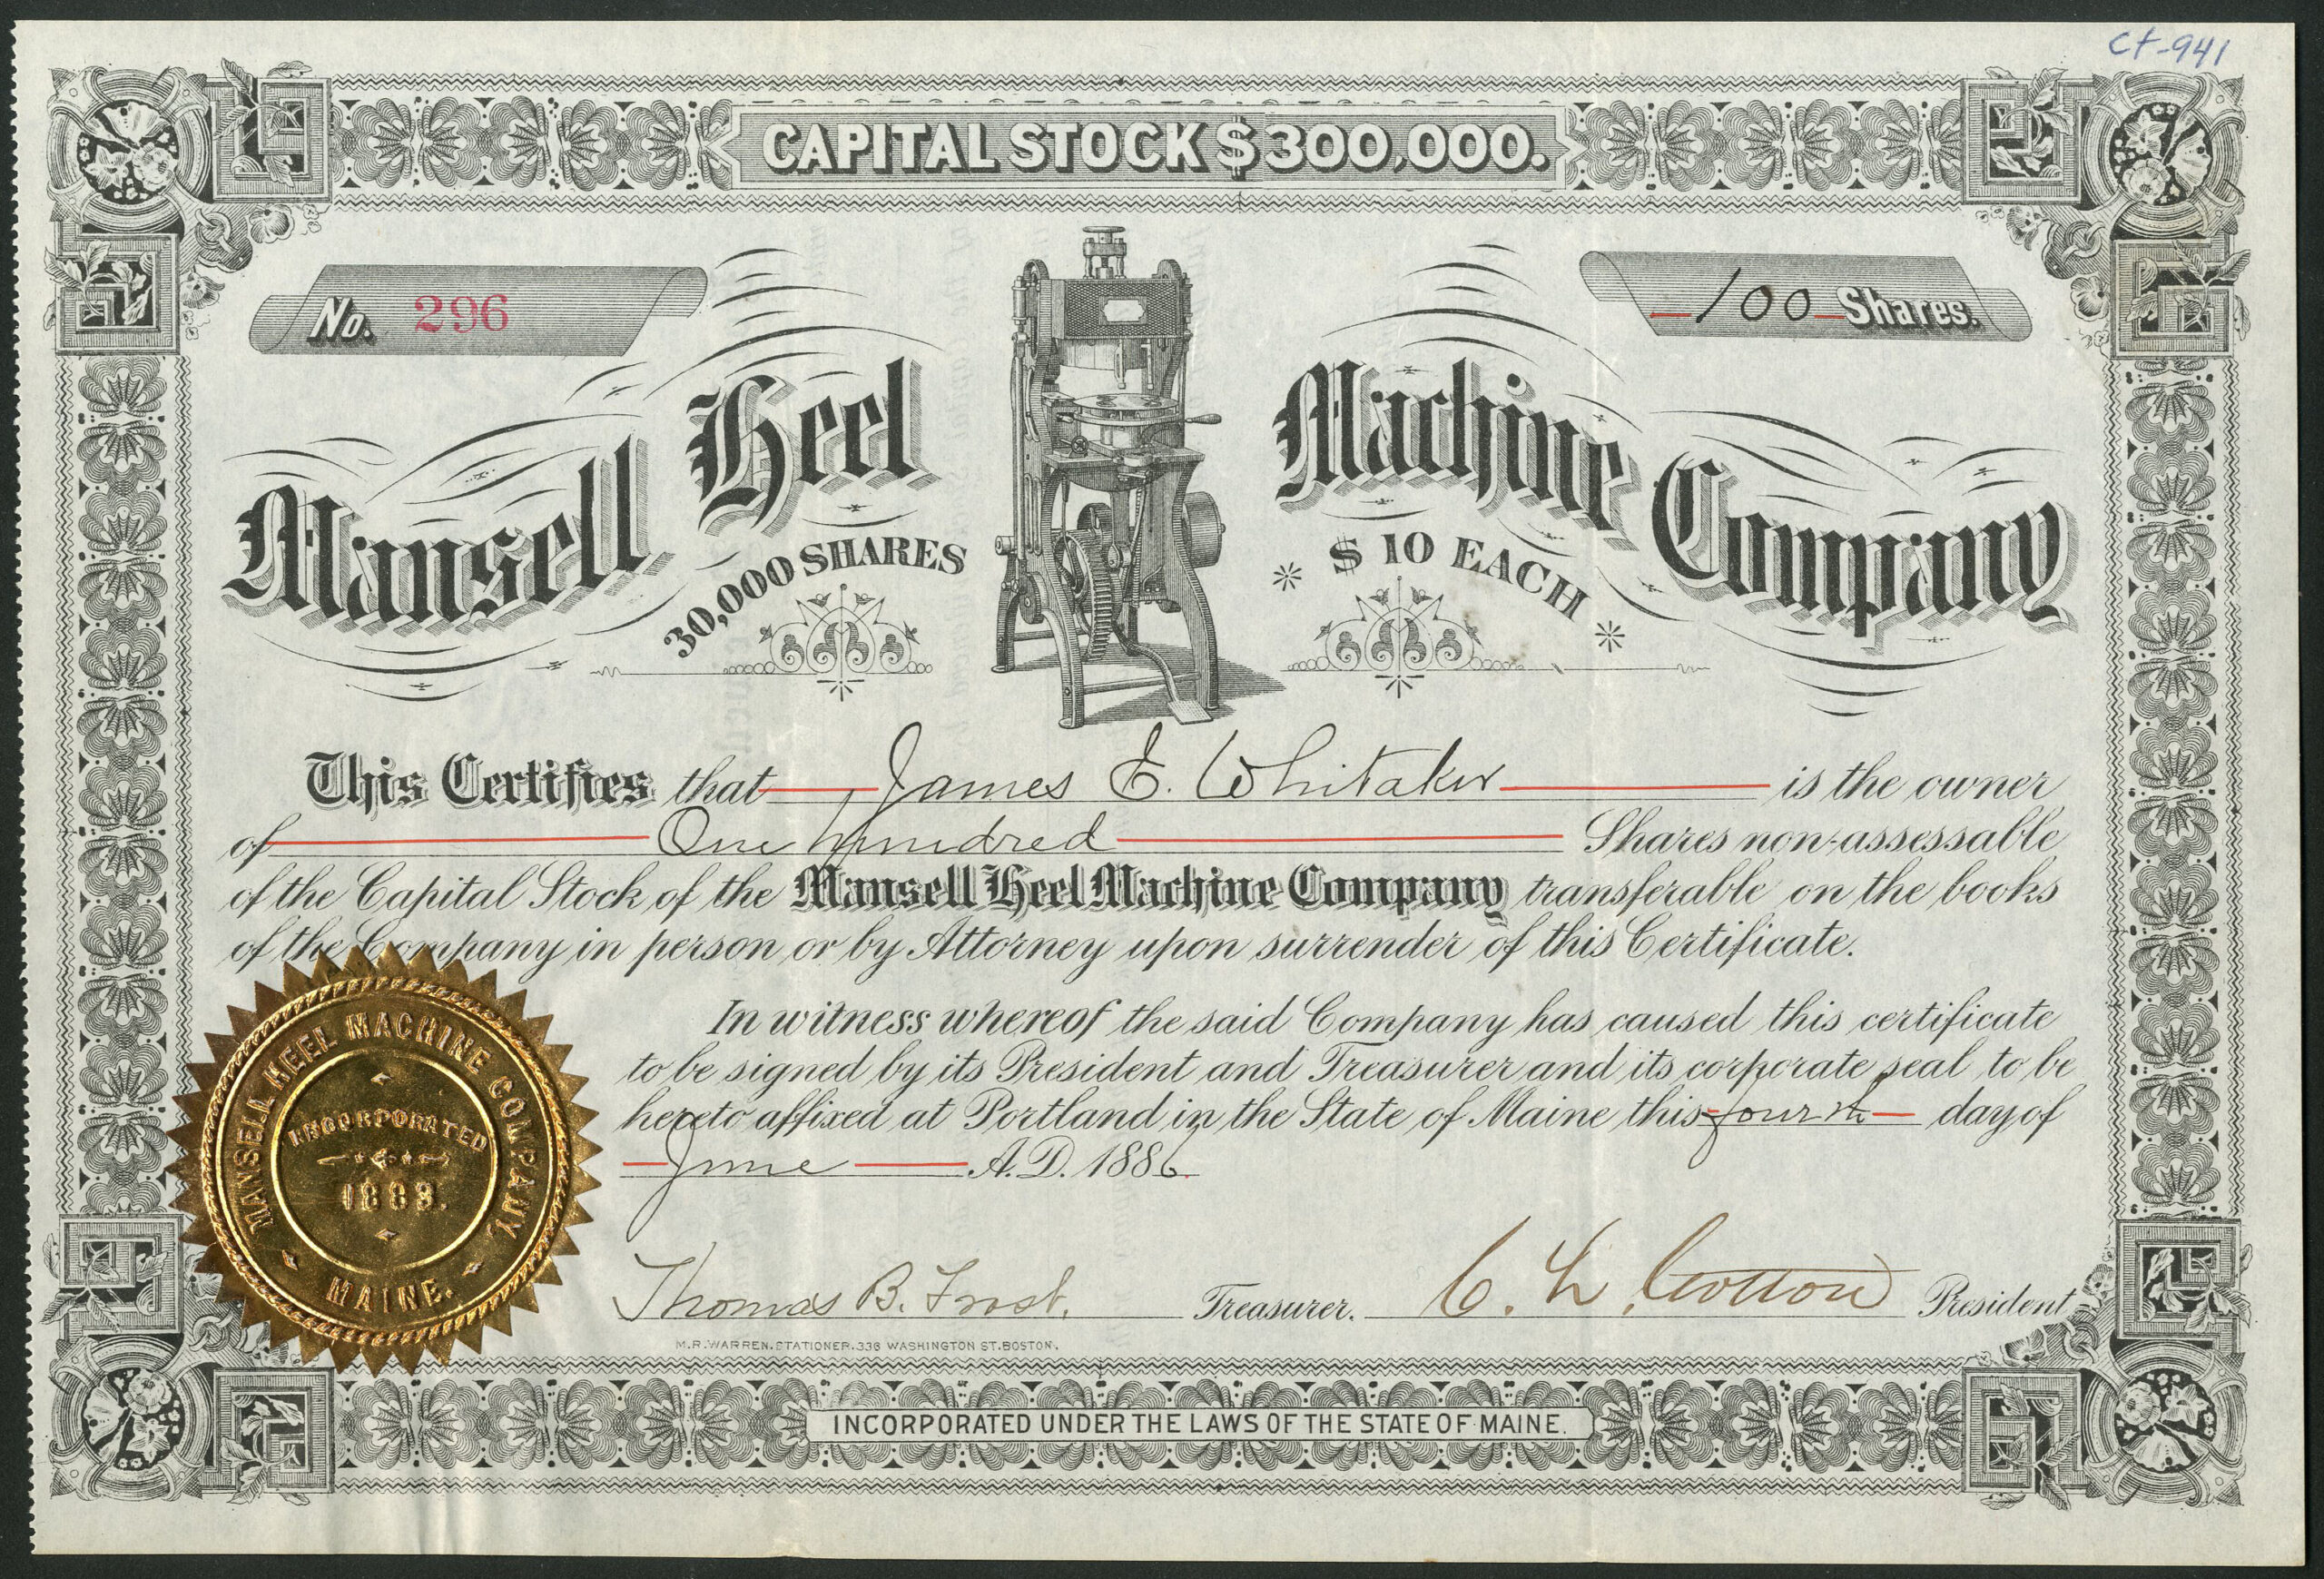 Ct-941
CAPITAL STOCK $300,000.
No. 296
100 Shares.
Mansell Heel Machine Company
30,000 SHARES $10 EACH
This Certifies that James E. Whitaker is the owner
of One hundred Shares non-assessable
of the Capital Stock of the Mansell Heel Machine Company transferable on the books
of the Company in person or by Attorney upon surrender of this Certificate.
In witness whereof the said Company has caused this certificate
to be signed by its President and Treasurer and its corporate seal to be
hereto affixed at Portland in the State of Maine this fourth day of
June A.D. 1886
MANSELL HEEL MACHINE COMPANY,
INCORPORATED
1883.
MAINE.
Thomas B. Frost. Treasurer. President
M.R. WARREN. STATIONER. 336 WASHINGTON ST. BOSTON.
INCORPORATED UNDER THE LAWS OF THE STATE OF MAINE.